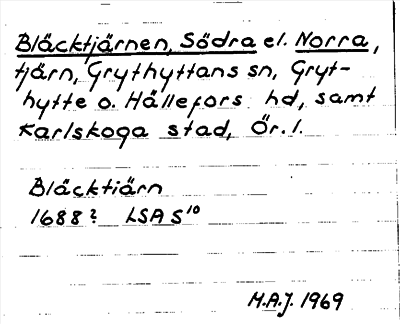 Bläcktjärnen, Södra el. Norra,
tjärn, Grythyttans sn, Gryt-
hytte o. Hällefors hd, samt
Karlskoga stad, Ör. l.
Bläcktiärn
1688? LSA S¹⁰
M.A.J. 1969